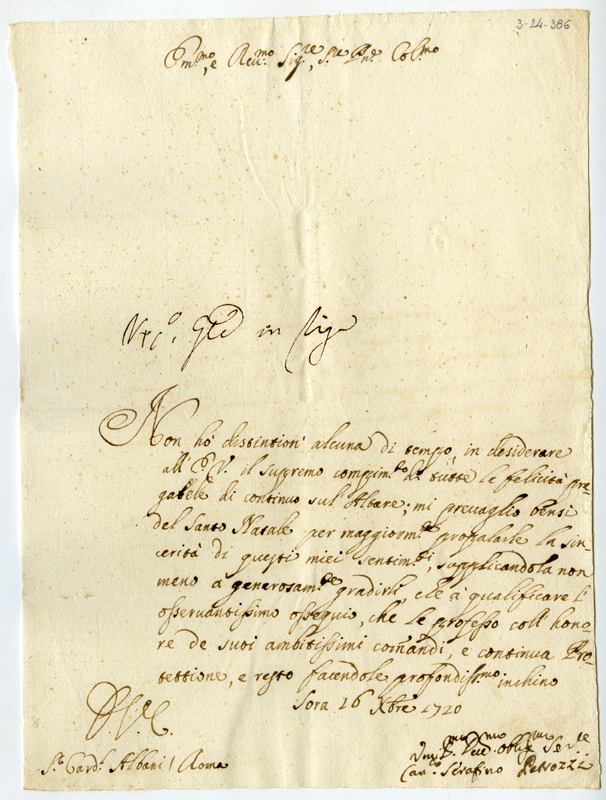 3-24-386
Em.mo, e Reu.mo Sig.re, S.re Pne. Col.mo
Non hò distintion' alcuna di tempo, in desiderare
all' E. V. il supremo compim.to di tutte le felicità pre-
gatele di continuo sul' Altare; mi prevaglio bensi
del Santo Natale per maggiorm.te propalarle la sin-
cerità di questi miei sentim.ti, supplicandola non
meno a generosam.te gradirli, che à qualificare l'
osservantissimo ossequio, che le professo coll' hono-
re de suoi ambitissimi comandi, e continua Pro-
tettione, e resto facendole profondiss.mo inchino
Sora 26 Xbre 1720
S.r Card.l Albani / Roma
Can.co Serafino Petrozzi